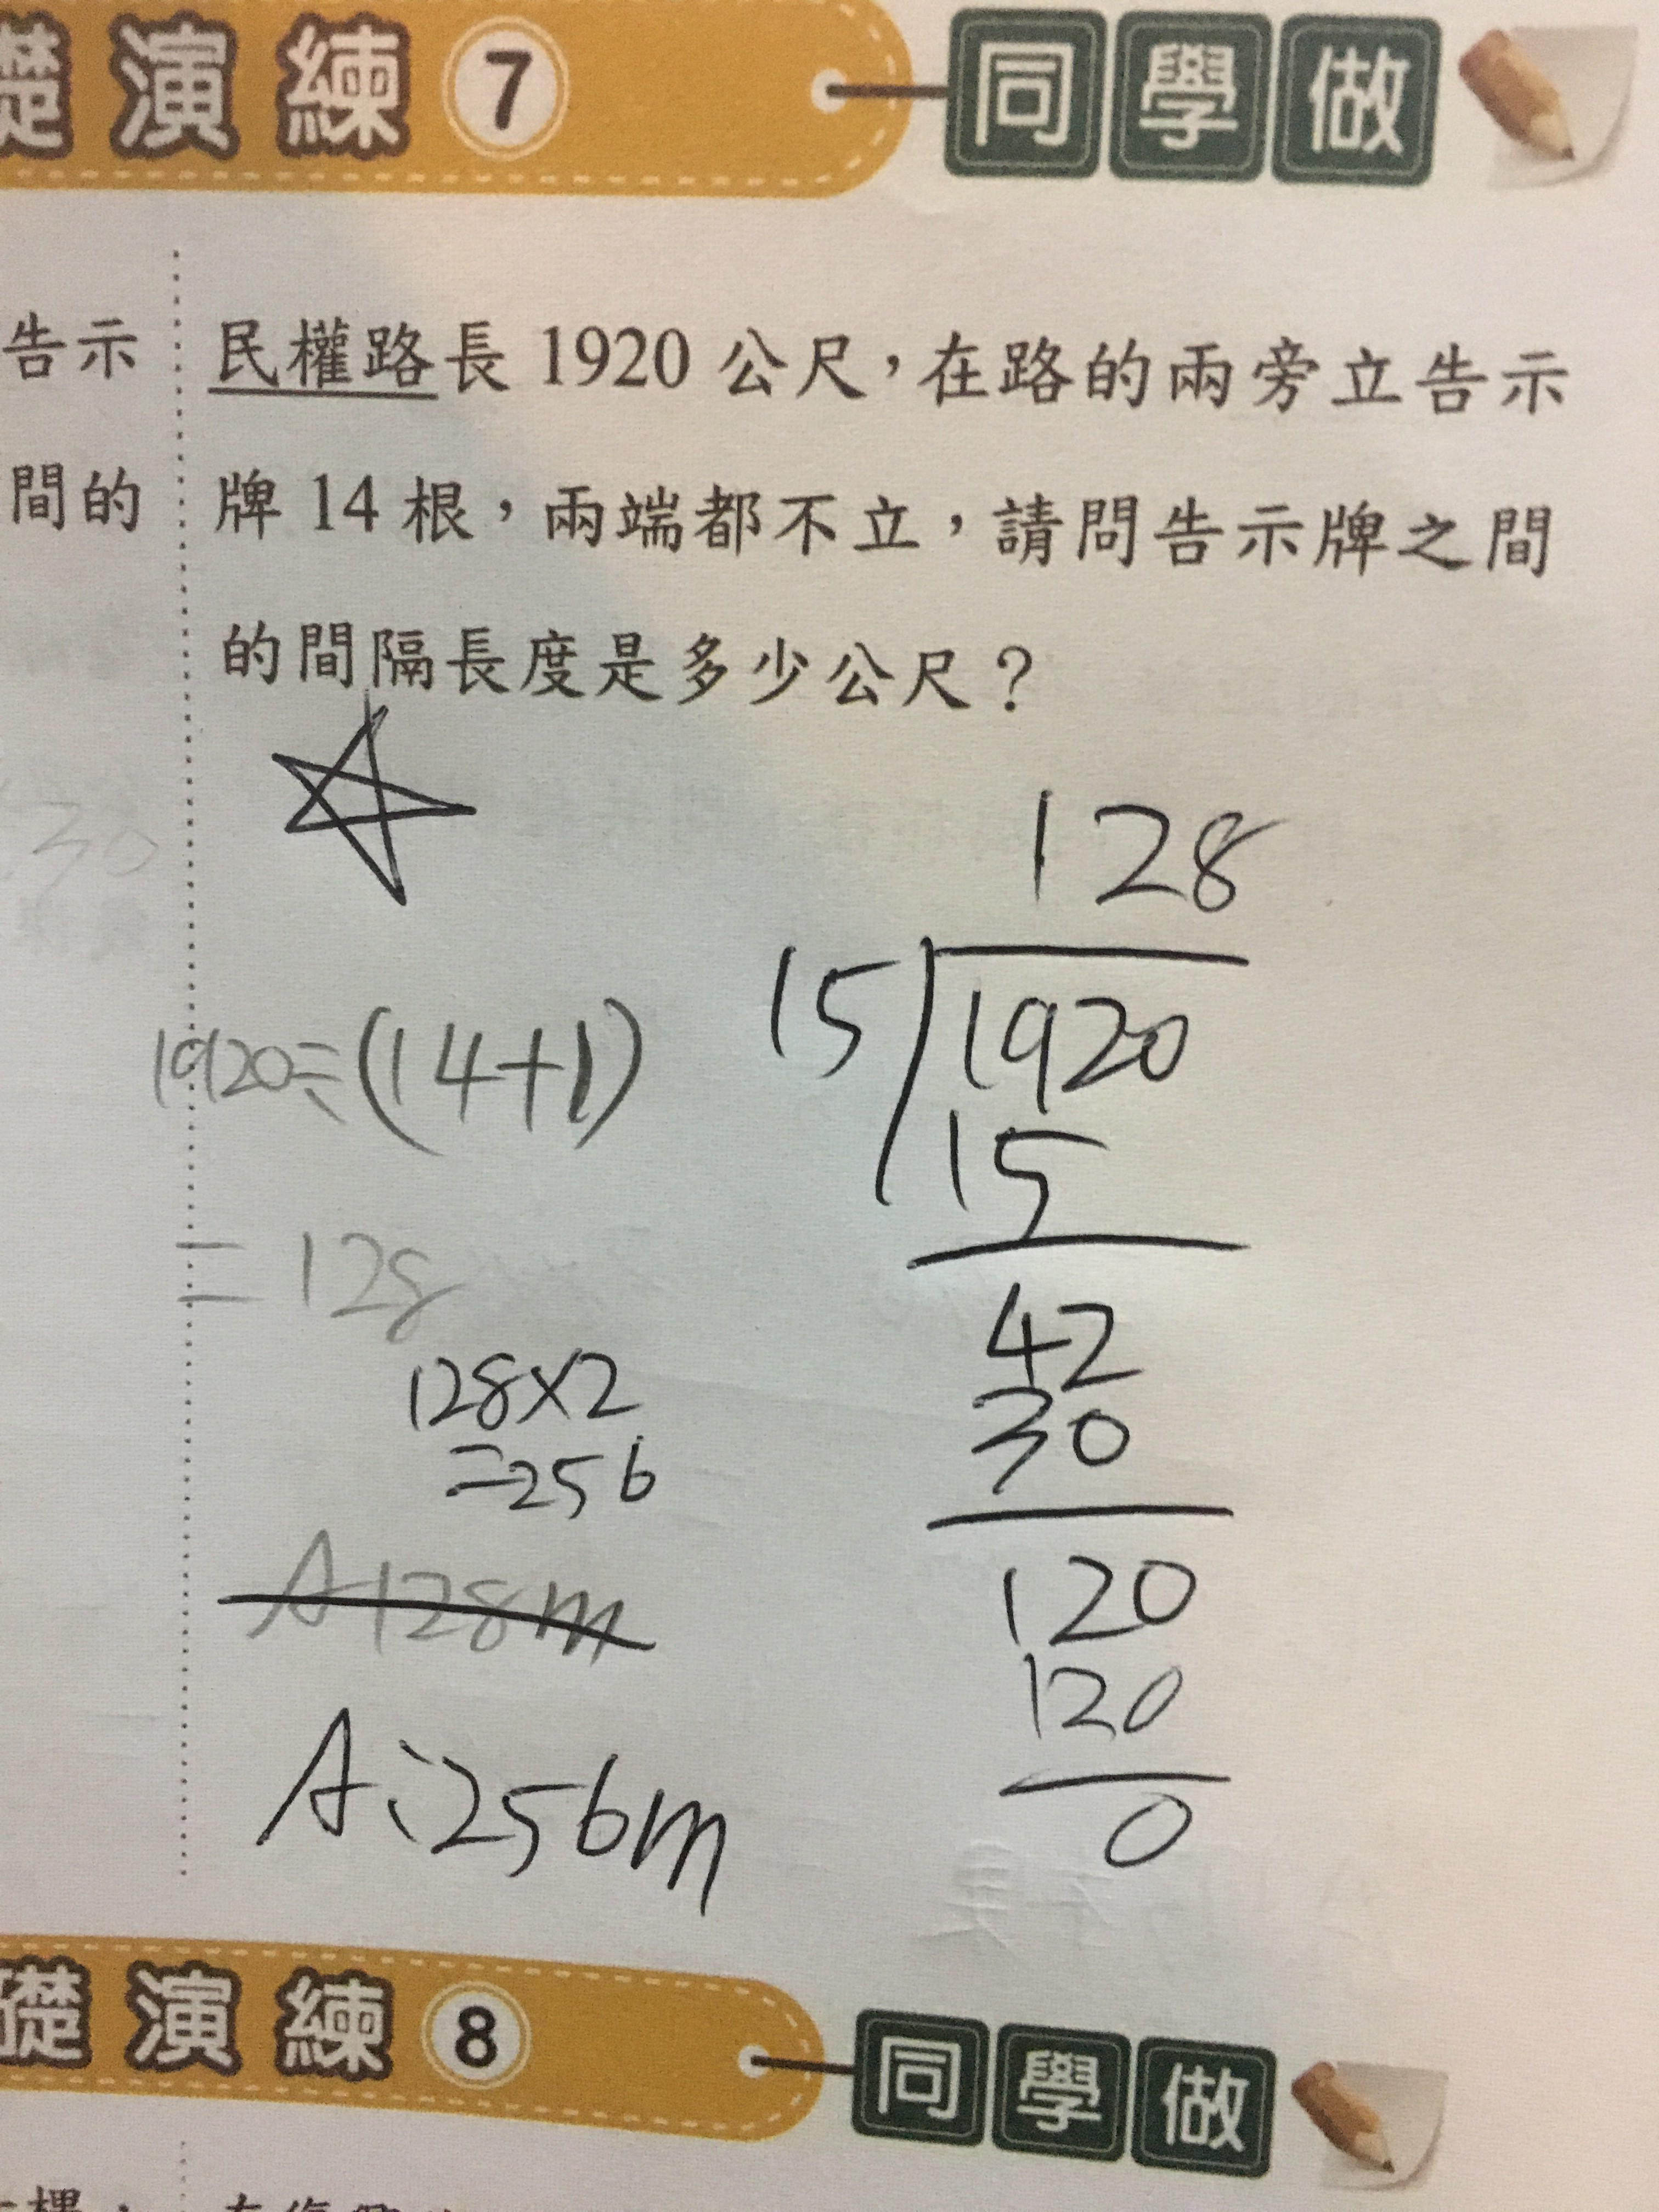 礎演練 7 同學做
告示
間的
民權路長 1920 公尺，在路的兩旁立告示
牌 14 根，兩端都不立，請問告示牌之間
的間隔長度是多少公尺？
1920÷(14+1)
=128
128×2
=256
A128m
A:256m
128
15 1920
15
42
30
120
120
0
礎演練 8 同學做